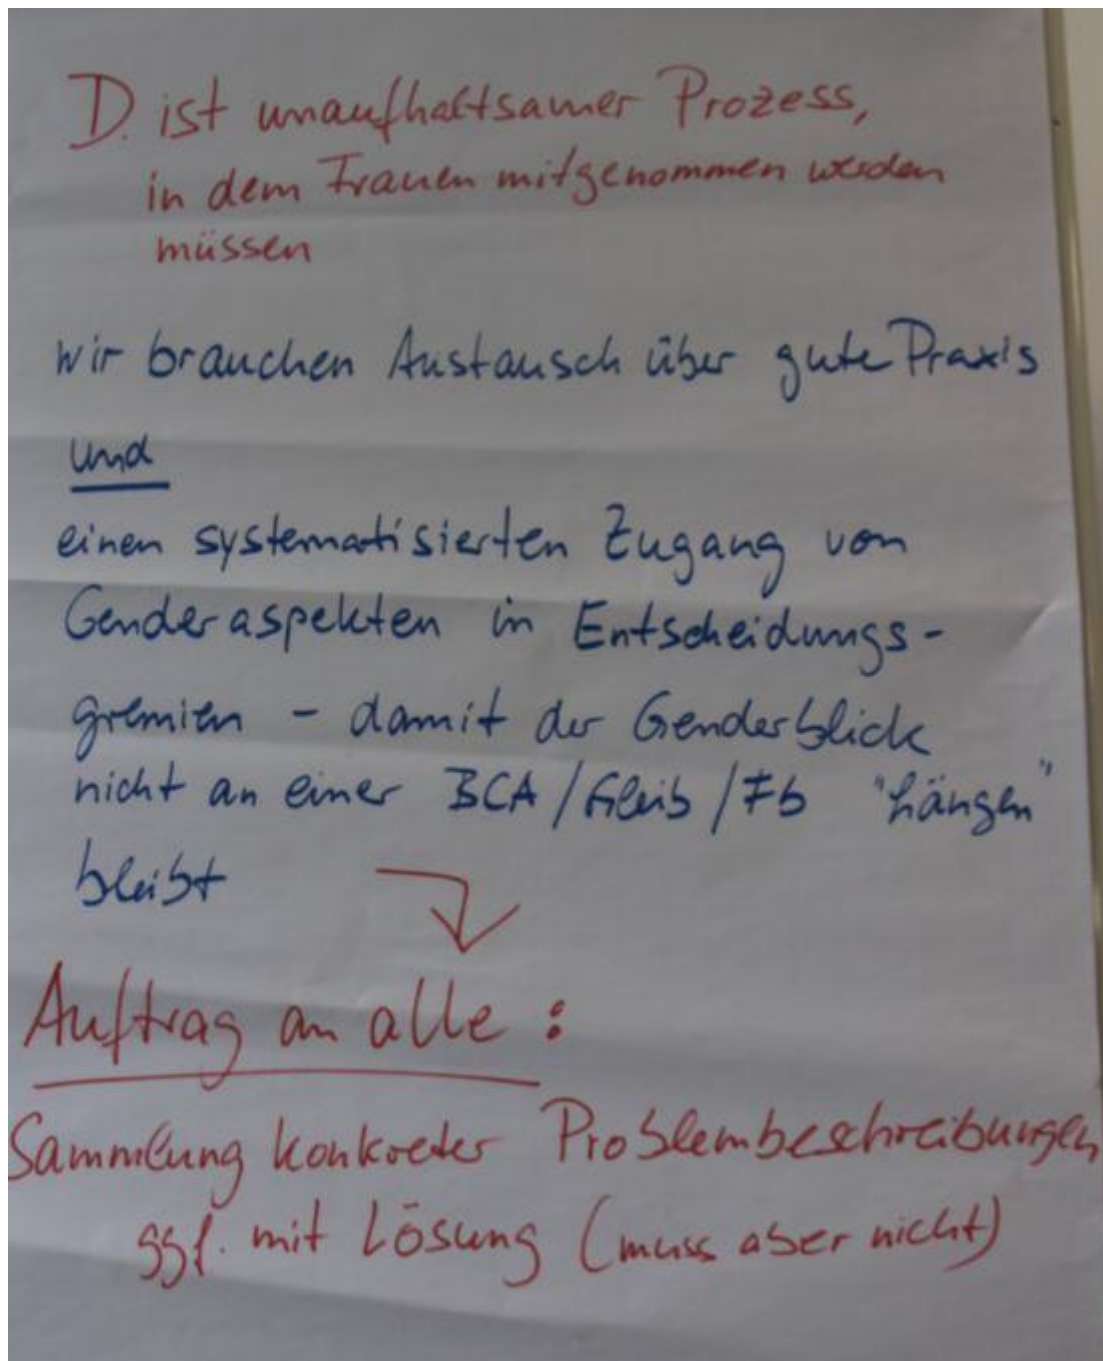 D. ist unaufhaltsamer Prozess,
in dem Frauen mitgenommen werden
müssen
wir brauchen Austausch über gute Praxis
und
einen systematisierten Zugang von
Genderaspekten in Entscheidungs-
gremien - damit der Genderblick
nicht an einer BCA/Gleib/Fb "hängen"
bleibt
Auftrag an alle:
Sammlung konkreter Problembeschreibungen
ggf. mit Lösung (muss aber nicht)